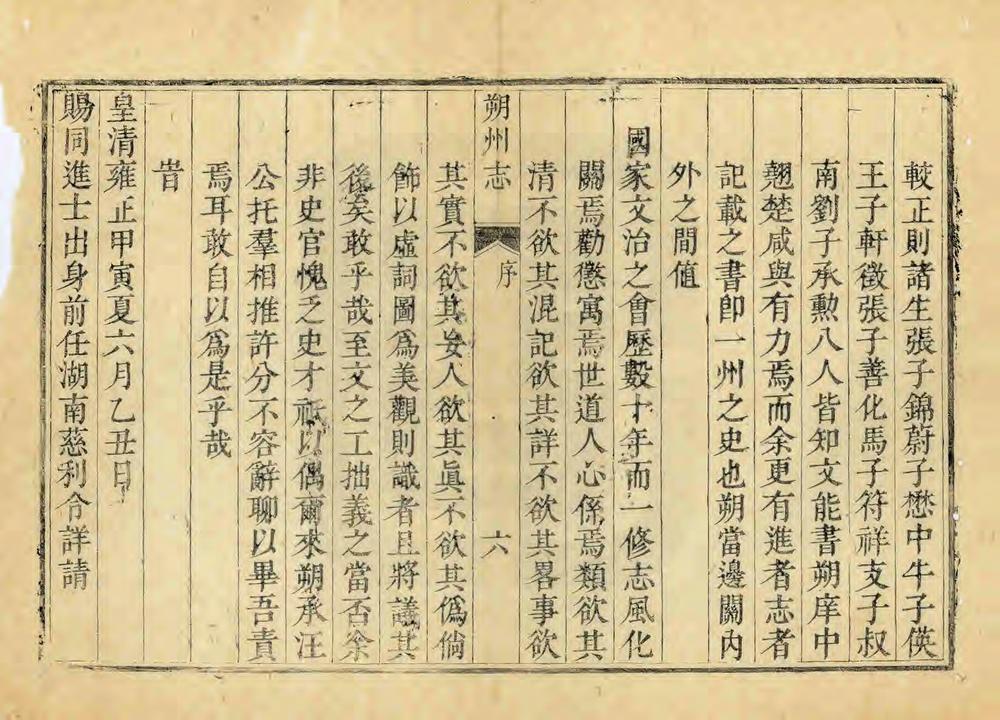 較正則諸生張子錦蔚子懋中牛子偀
王子軒徵張子善化馬子符祥支子叔
南劉子承勲八人皆知文能書朔庠中
翹楚咸與有力焉而余更有進者志者
記載之書卽一州之史也朔當邊關內
外之間値
國家文治之會歷數十年而一修志風化
關焉勸懲寓焉世道人心係焉類欲其
清不欲其混記欲其詳不欲其畧事欲
朔州志
序
六
其實不欲其妄人欲其眞不欲其僞倘
飾以虛詞圖爲美觀則識者且將議其
後矣敢乎哉至文之工拙義之當否余
非史官愧乏史才祇以偶爾來朔承汪
公托羣相推許分不容辭聊以畢吾責
焉耳敢自以爲是乎哉
旹
皇清雍正甲寅夏六月乙丑日
賜同進士出身前任湖南慈利令詳請